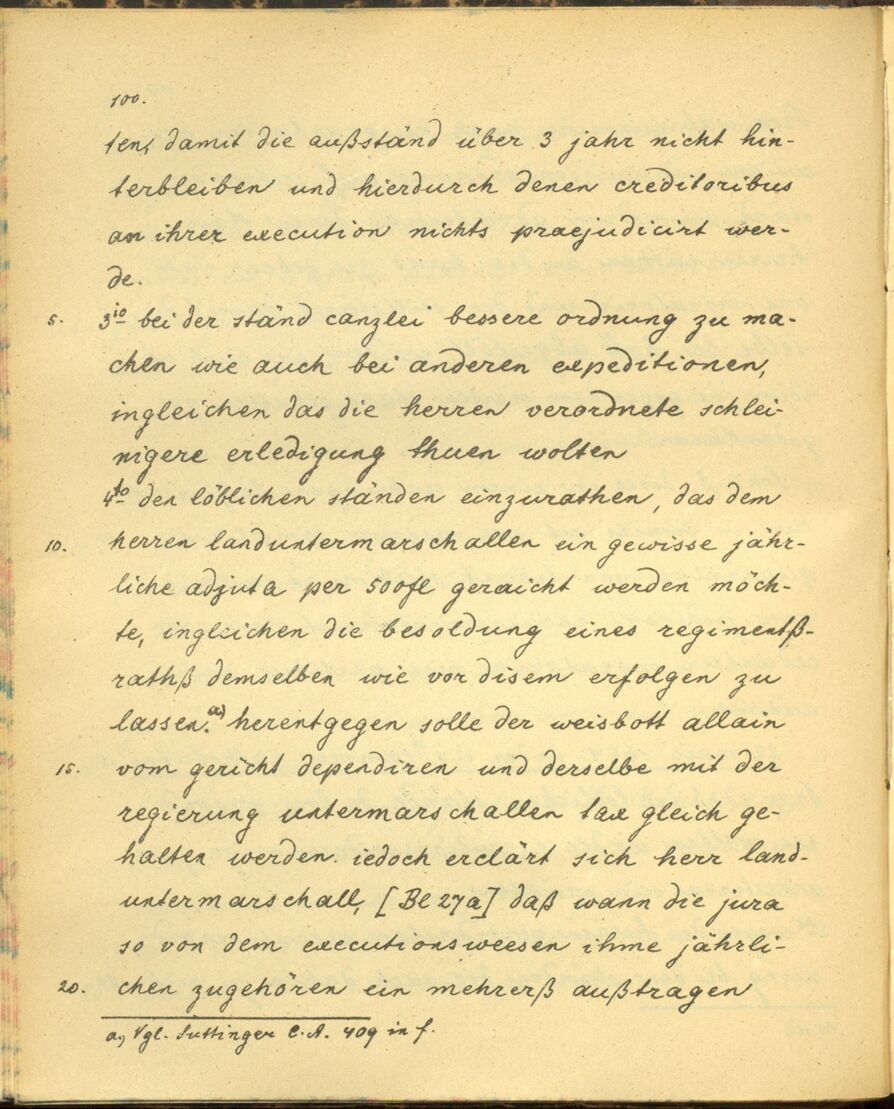 100.
ten, damit die außständ über 3 jahr nicht hin-
terbleiben und hierdurch denen creditoribus
an ihrer execution nichts praejudicirt wer-
de.
5. 3io bei der ständ canzlei bessere ordnung zu ma-
chen wie auch bei anderen expeditionen,
ingleichen das die herren verordnete schlei-
nigere erledigung thuen wolten
4to den löblichen ständen einzurathen, das dem
10. herren landuntermarschallen ein gewisse jähr-
liche adjuta per 500fl geraicht werden möch-
te, ingleichen die besoldung eines regimentß-
rathß demselben wie vor disem erfolgen zu
lassen.a) herentgegen solle der weisbott allain
15. vom gericht dependiren und derselbe mit der
regierung untermarschallen tax gleich ge-
halten werden. iedoch erclärt sich herr land-
untermarschall, [Bl 27a] daß wann die jura
so von dem executionsweesen ihme jährli-
20. chen zugehören ein mehrerß außtragen
a) Vgl. Suttinger C. A. 409 in f.